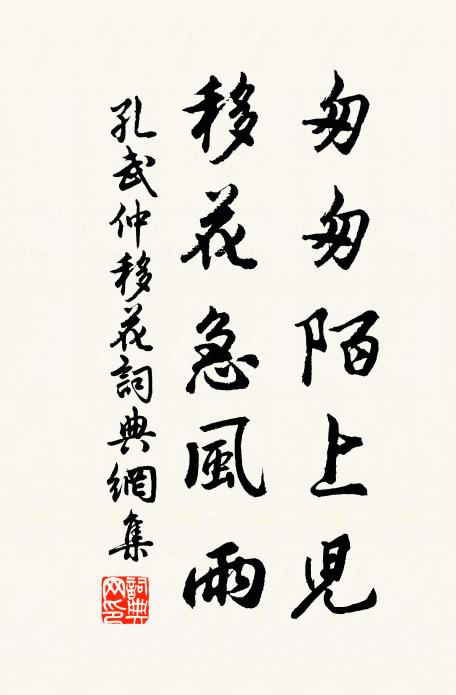 匆匆陌上児
移花急風雨
孔武仲移花詞典網集
詞典
网印